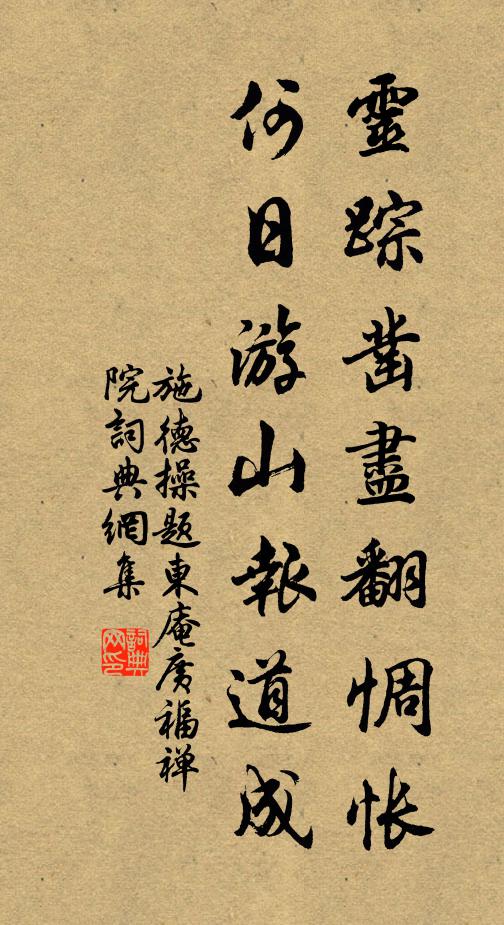 靈踪凿盡翻惆怅
何日游山報道成
施德操题東庵廣福禅
院詞典網集
詞典
网印